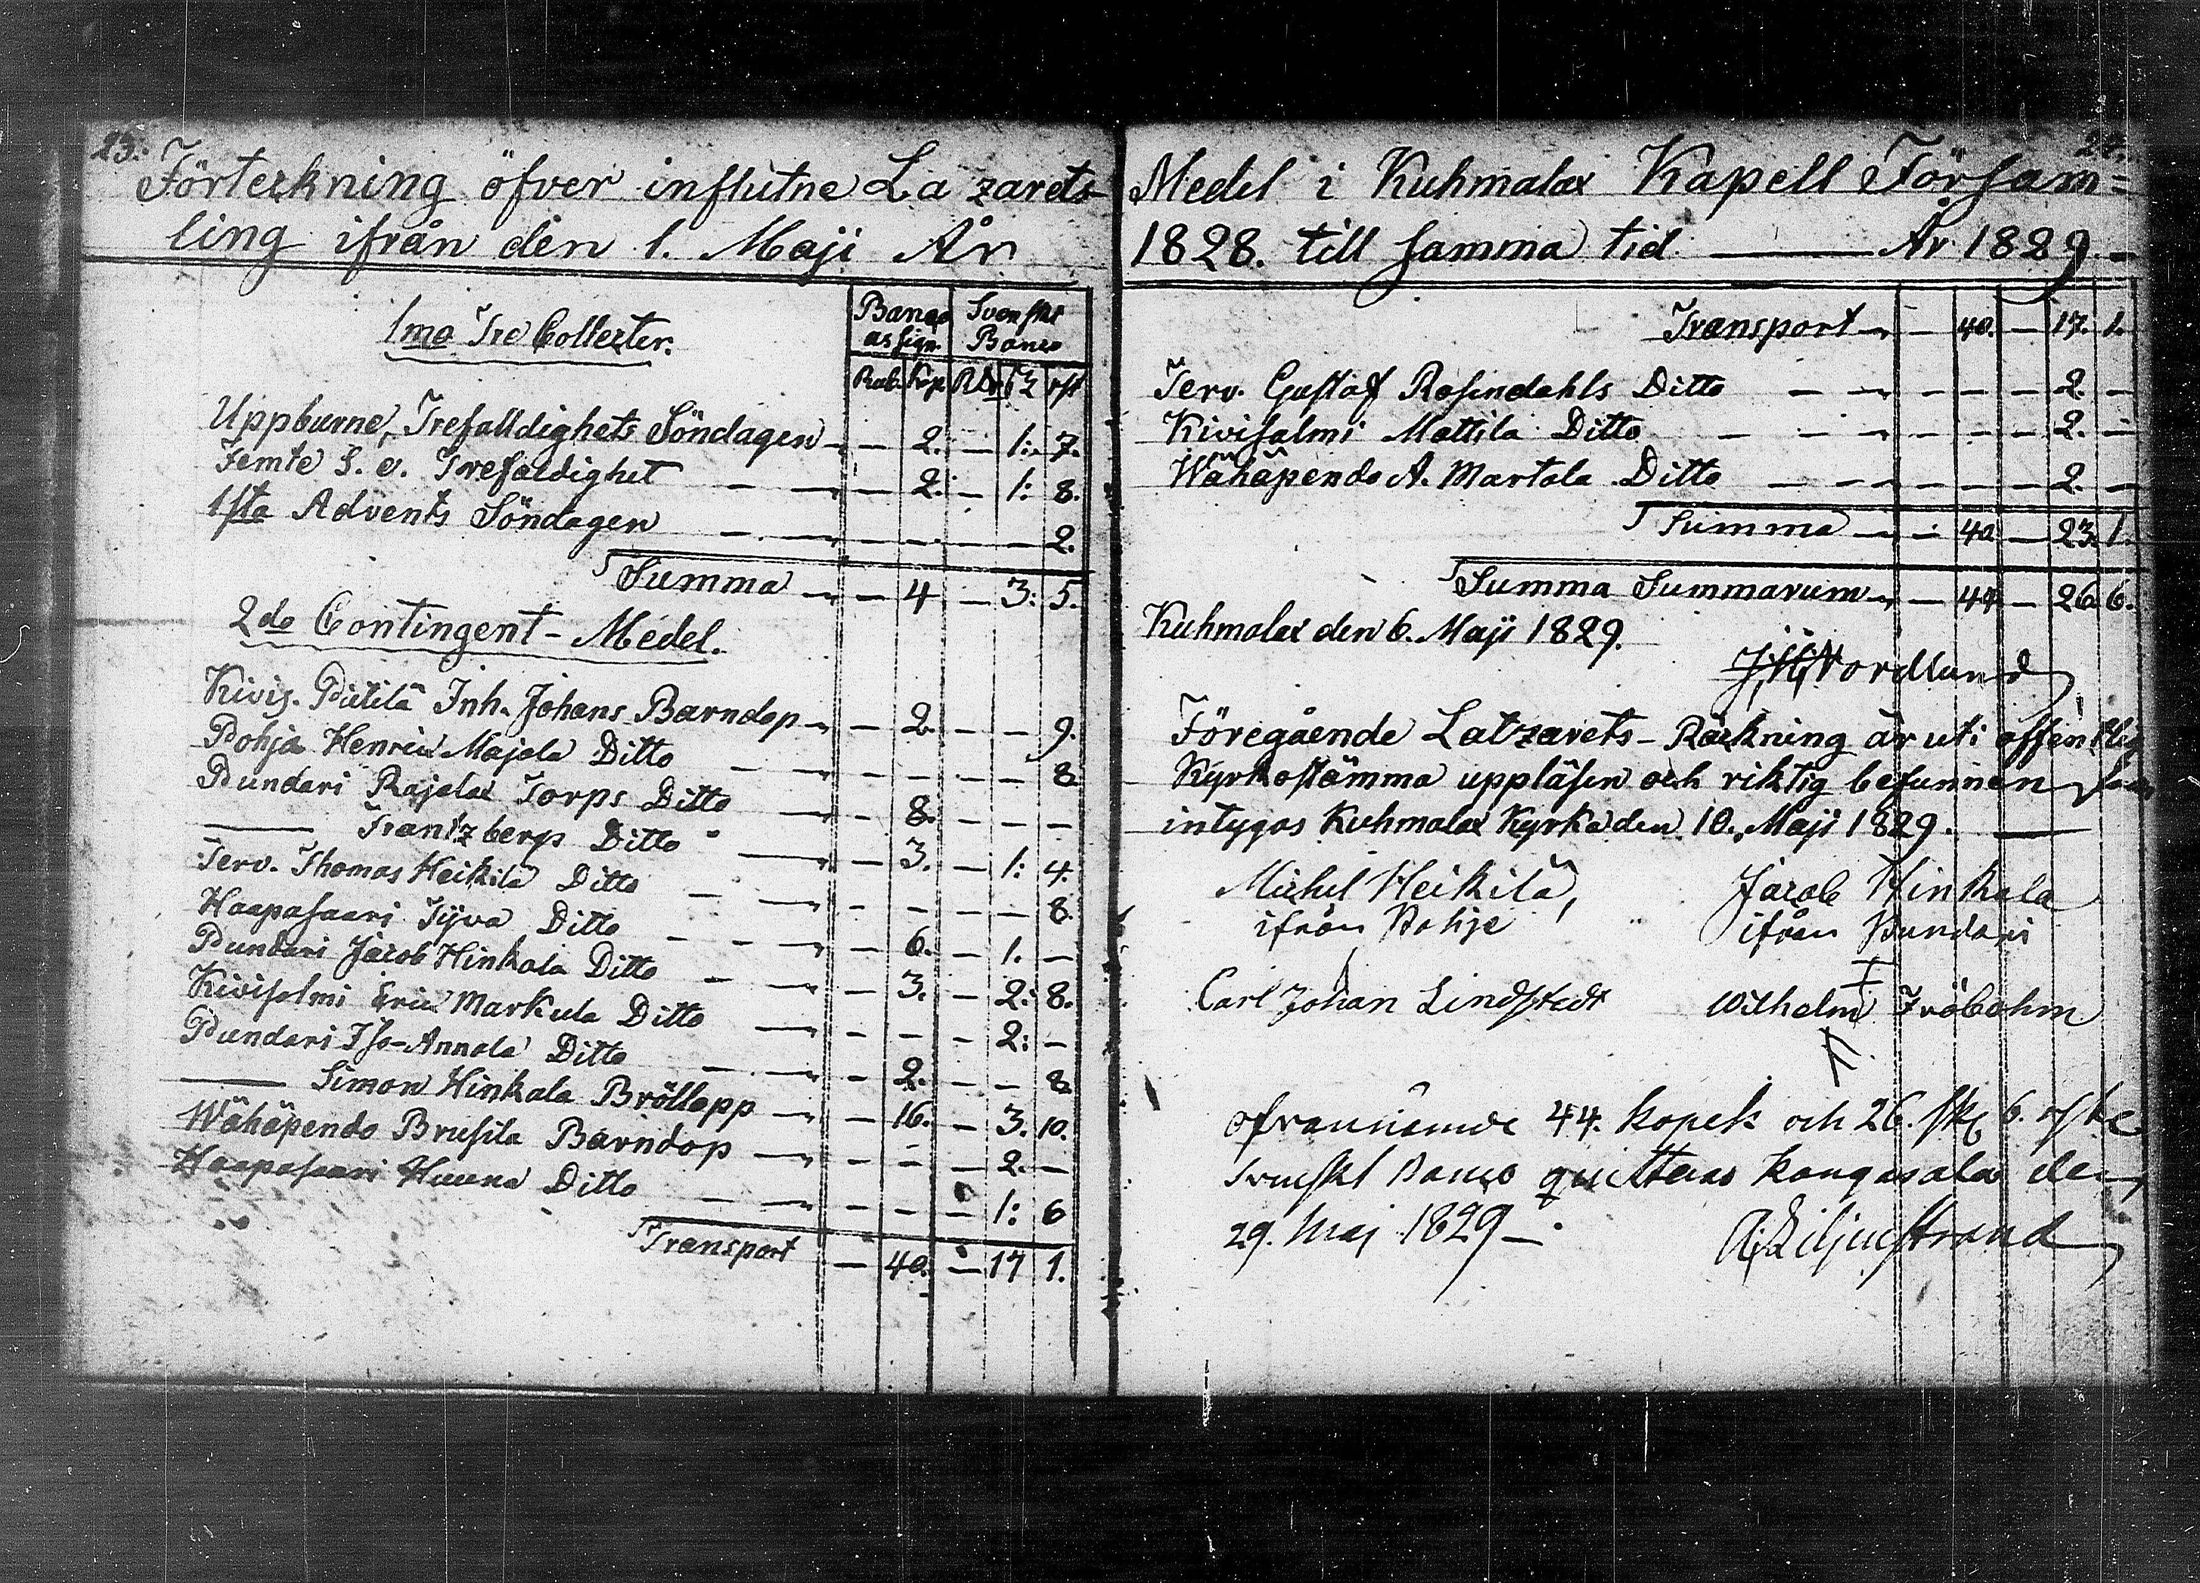 23.
Förteckning öfver influtne Lazarets
ling ifrån den 1. Maji År
1mo Tre Collecter.
Banco assign. Svenskt Banco
Rub. Kop. Rdr ß rst
Uppburne, Trefalldighets Söndagen — 2. — 1: 7.
Femte S. e. Trefaldighet — 2. — 1: 8.
1sta Advents Söndagen — — — — 2.
Summa — 4 — 3: 5.
2do Contingent-Medel.
Kivis. Pietilä Inh. Johans Barndop — 2 — — 9.
Pohja Henric Majala Ditto — — — — 8
Pundari Rajalax Torps Ditto — 8. — — —
—— Frantzbergs Ditto — 3. — 1: 4.
Terv. Thomas Heikilä Ditto — — — — 8.
Haapasaari Tyva Ditto — 6. — 1. —
Pundari Jacob Hinkala Ditto — 3. — 2: 8.
Kivisalmi Eric Markula Ditto — — — 2: —
Pundari Iso-Annala Ditto — 2. — — 8
—— Simon Hinkala Bröllopp — 16. — 3. 10.
Wähäpendo Brusila Barndop — — — 2. —
Haapasaari Huuna Ditto — — — 1: 6
Transport — 40. — 17 1.
24.
Medel i Kuhmalax Kapell Församͫ=
1828. till samma tid. —— År 1829. —
Transport — 40. — 17. 1.
Terv. Gustaf Rosendahls Ditto — — — 2. —
Kivisalmi Mattila Ditto — — — 2. —
Wähäpendo A. Martala Ditto — — — 2. —
Summa — 40 — 23. 1.
Summa Summarum — 44 — 26. 6.
Kuhmalax den 6. Maji 1829.
J. H. Nordlund
Föregående Latzarets-Räkning är uti offentlig
Kyrkostämma uppläsen och riktig befunnen, som
intygas Kuhmalax Kyrka den 10. Maji 1829. ——
Michel Heikilä, Jacob Hinkala
ifrån Pohja ifrån Pundari
Carl Johan Lindstedt Wilhelm Fröbohm
ofvannämde 44. kopek och 26. sk 6. rst
Svenskt Banco quitteras Kangasala den
29. Maj 1829 —.
A. Liljestrand